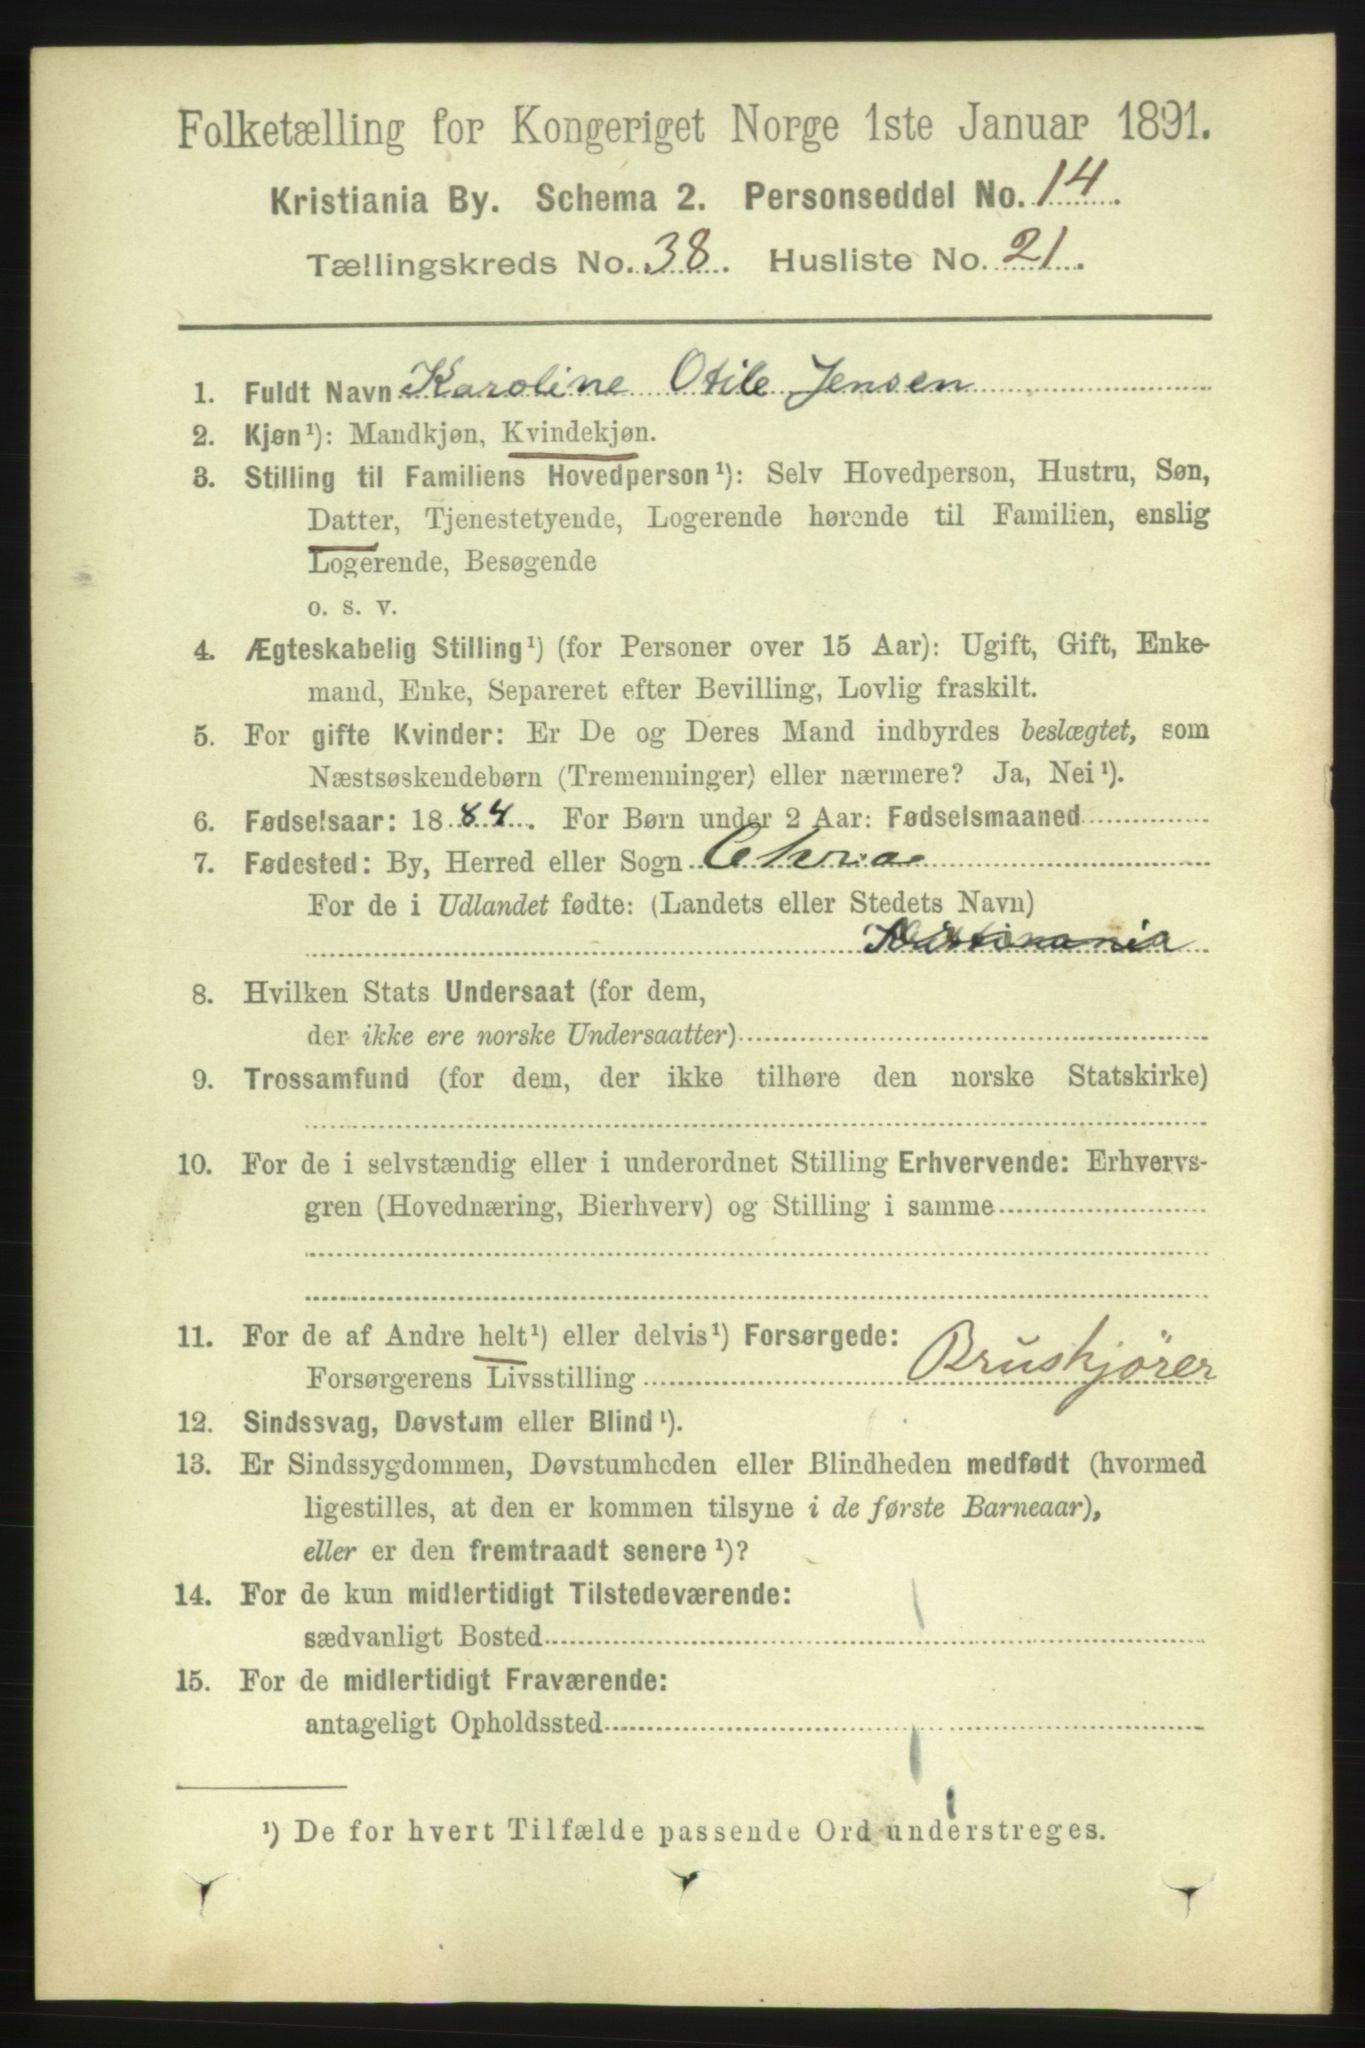 Folketælling for Kongeriget Norge 1ste Januar 1891.
Kristiania By. Schema 2. Personseddel No. 14.
Tællingskreds No. 38. Husliste No. 21.
1. Fuldt Navn Karoline Otile Jensen
2. Kjøn¹): Mandkjøn, Kvindekjøn.
3. Stilling til Familiens Hovedperson¹): Selv Hovedperson, Hustru, Søn,
Datter, Tjenestetyende, Logerende hørende til Familien, enslig
Logerende, Besøgende
o. s. v.
4. Ægteskabelig Stilling¹) (for Personer over 15 Aar): Ugift, Gift, Enke-
mand, Enke, Separeret efter Bevilling, Lovlig fraskilt.
5. For gifte Kvinder: Er De og Deres Mand indbyrdes beslægtet, som
Næstsøskendebørn (Tremenninger) eller nærmere? Ja, Nei¹).
6. Fødselsaar: 1884. For Børn under 2 Aar: Fødselsmaaned
7. Fødested: By, Herred eller Sogn Chria
For de i Udlandet fødte: (Landets eller Stedets Navn)
8. Hvilken Stats Undersaat (for dem,
der ikke ere norske Undersaatter)
9. Trossamfund (for dem, der ikke tilhøre den norske Statskirke)
10. For de i selvstændig eller i underordnet Stilling Erhvervende: Erhvervs-
gren (Hovednæring, Bierhverv) og Stilling i samme
11. For de af Andre helt¹) eller delvis¹) Forsørgede:
Forsørgerens Livsstilling Bruskjører
12. Sindssvag, Døvstum eller Blind¹).
13. Er Sindssygdommen, Døvstumheden eller Blindheden medfødt (hvormed
ligestilles, at den er kommen tilsyne i de første Barneaar),
eller er den fremtraadt senere¹)?
14. For de kun midlertidigt Tilstedeværende:
sædvanligt Bosted
15. For de midlertidigt Fraværende:
antageligt Opholdssted
¹) De for hvert Tilfælde passende Ord understreges.